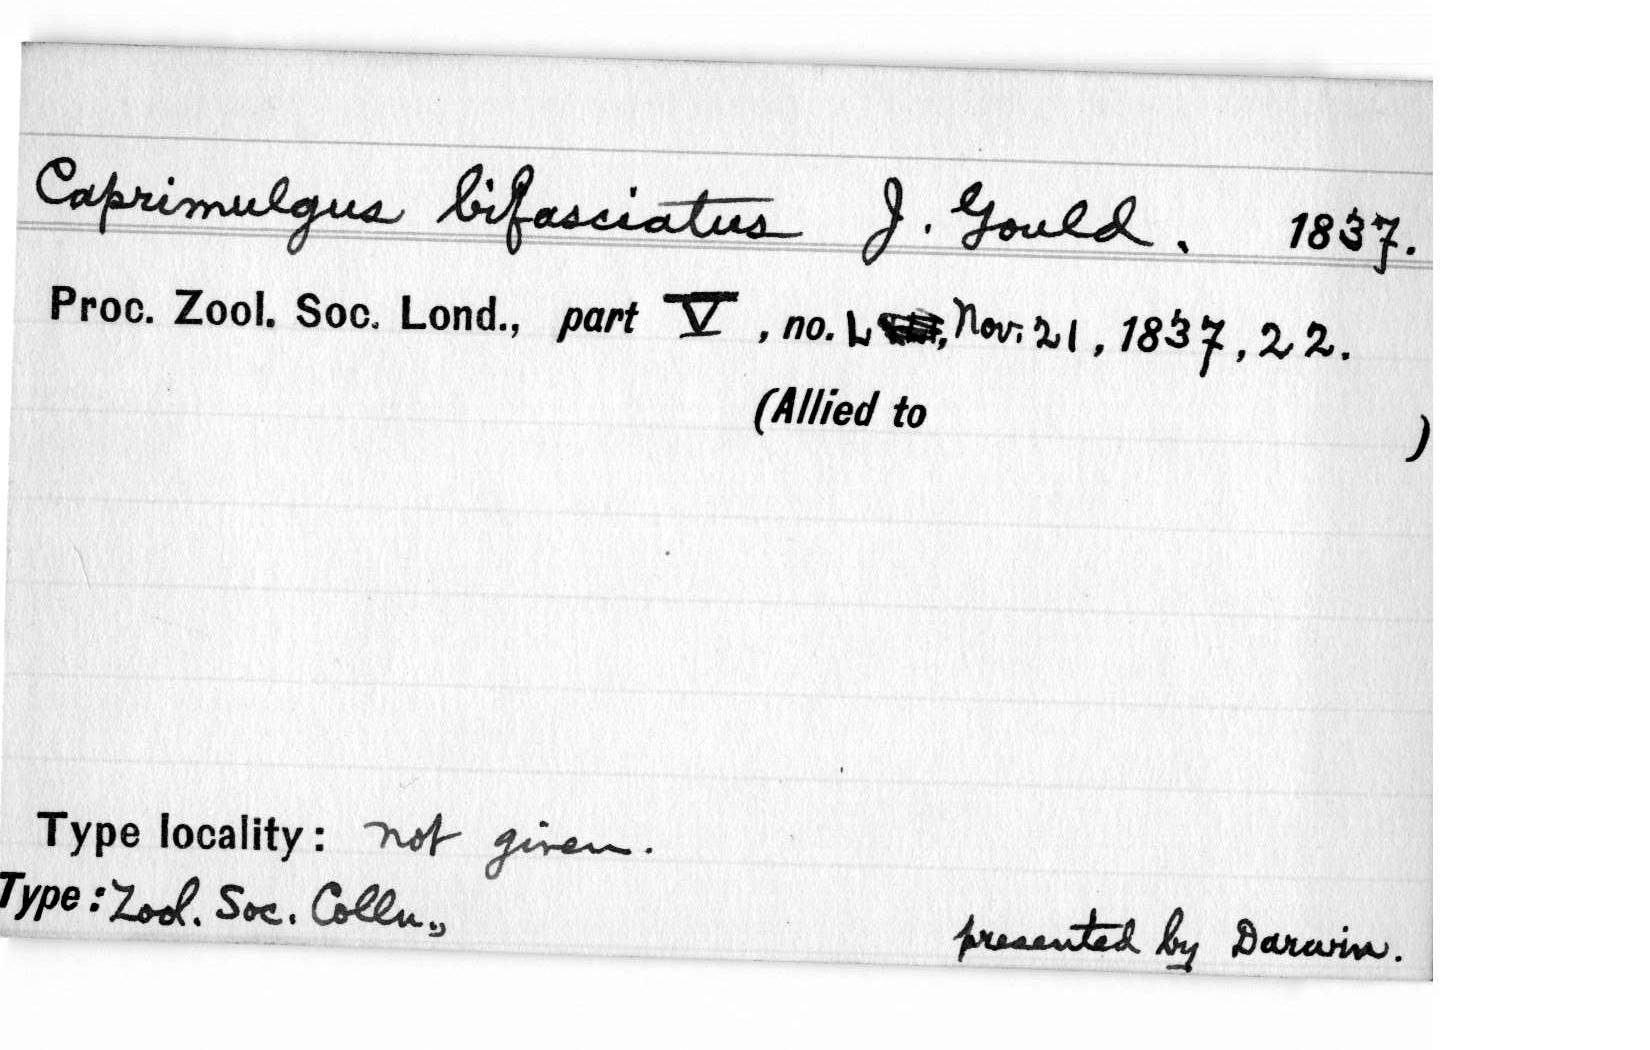 Caprimulgus bifasciatus J. Gould. 1837.
Proc. Zool. Soc. Lond., part V, no. L, Nov. 21, 1837, 22.
(Allied to )
Type locality: not given.
Type: Zool. Soc. Colln., presented by Darwin.